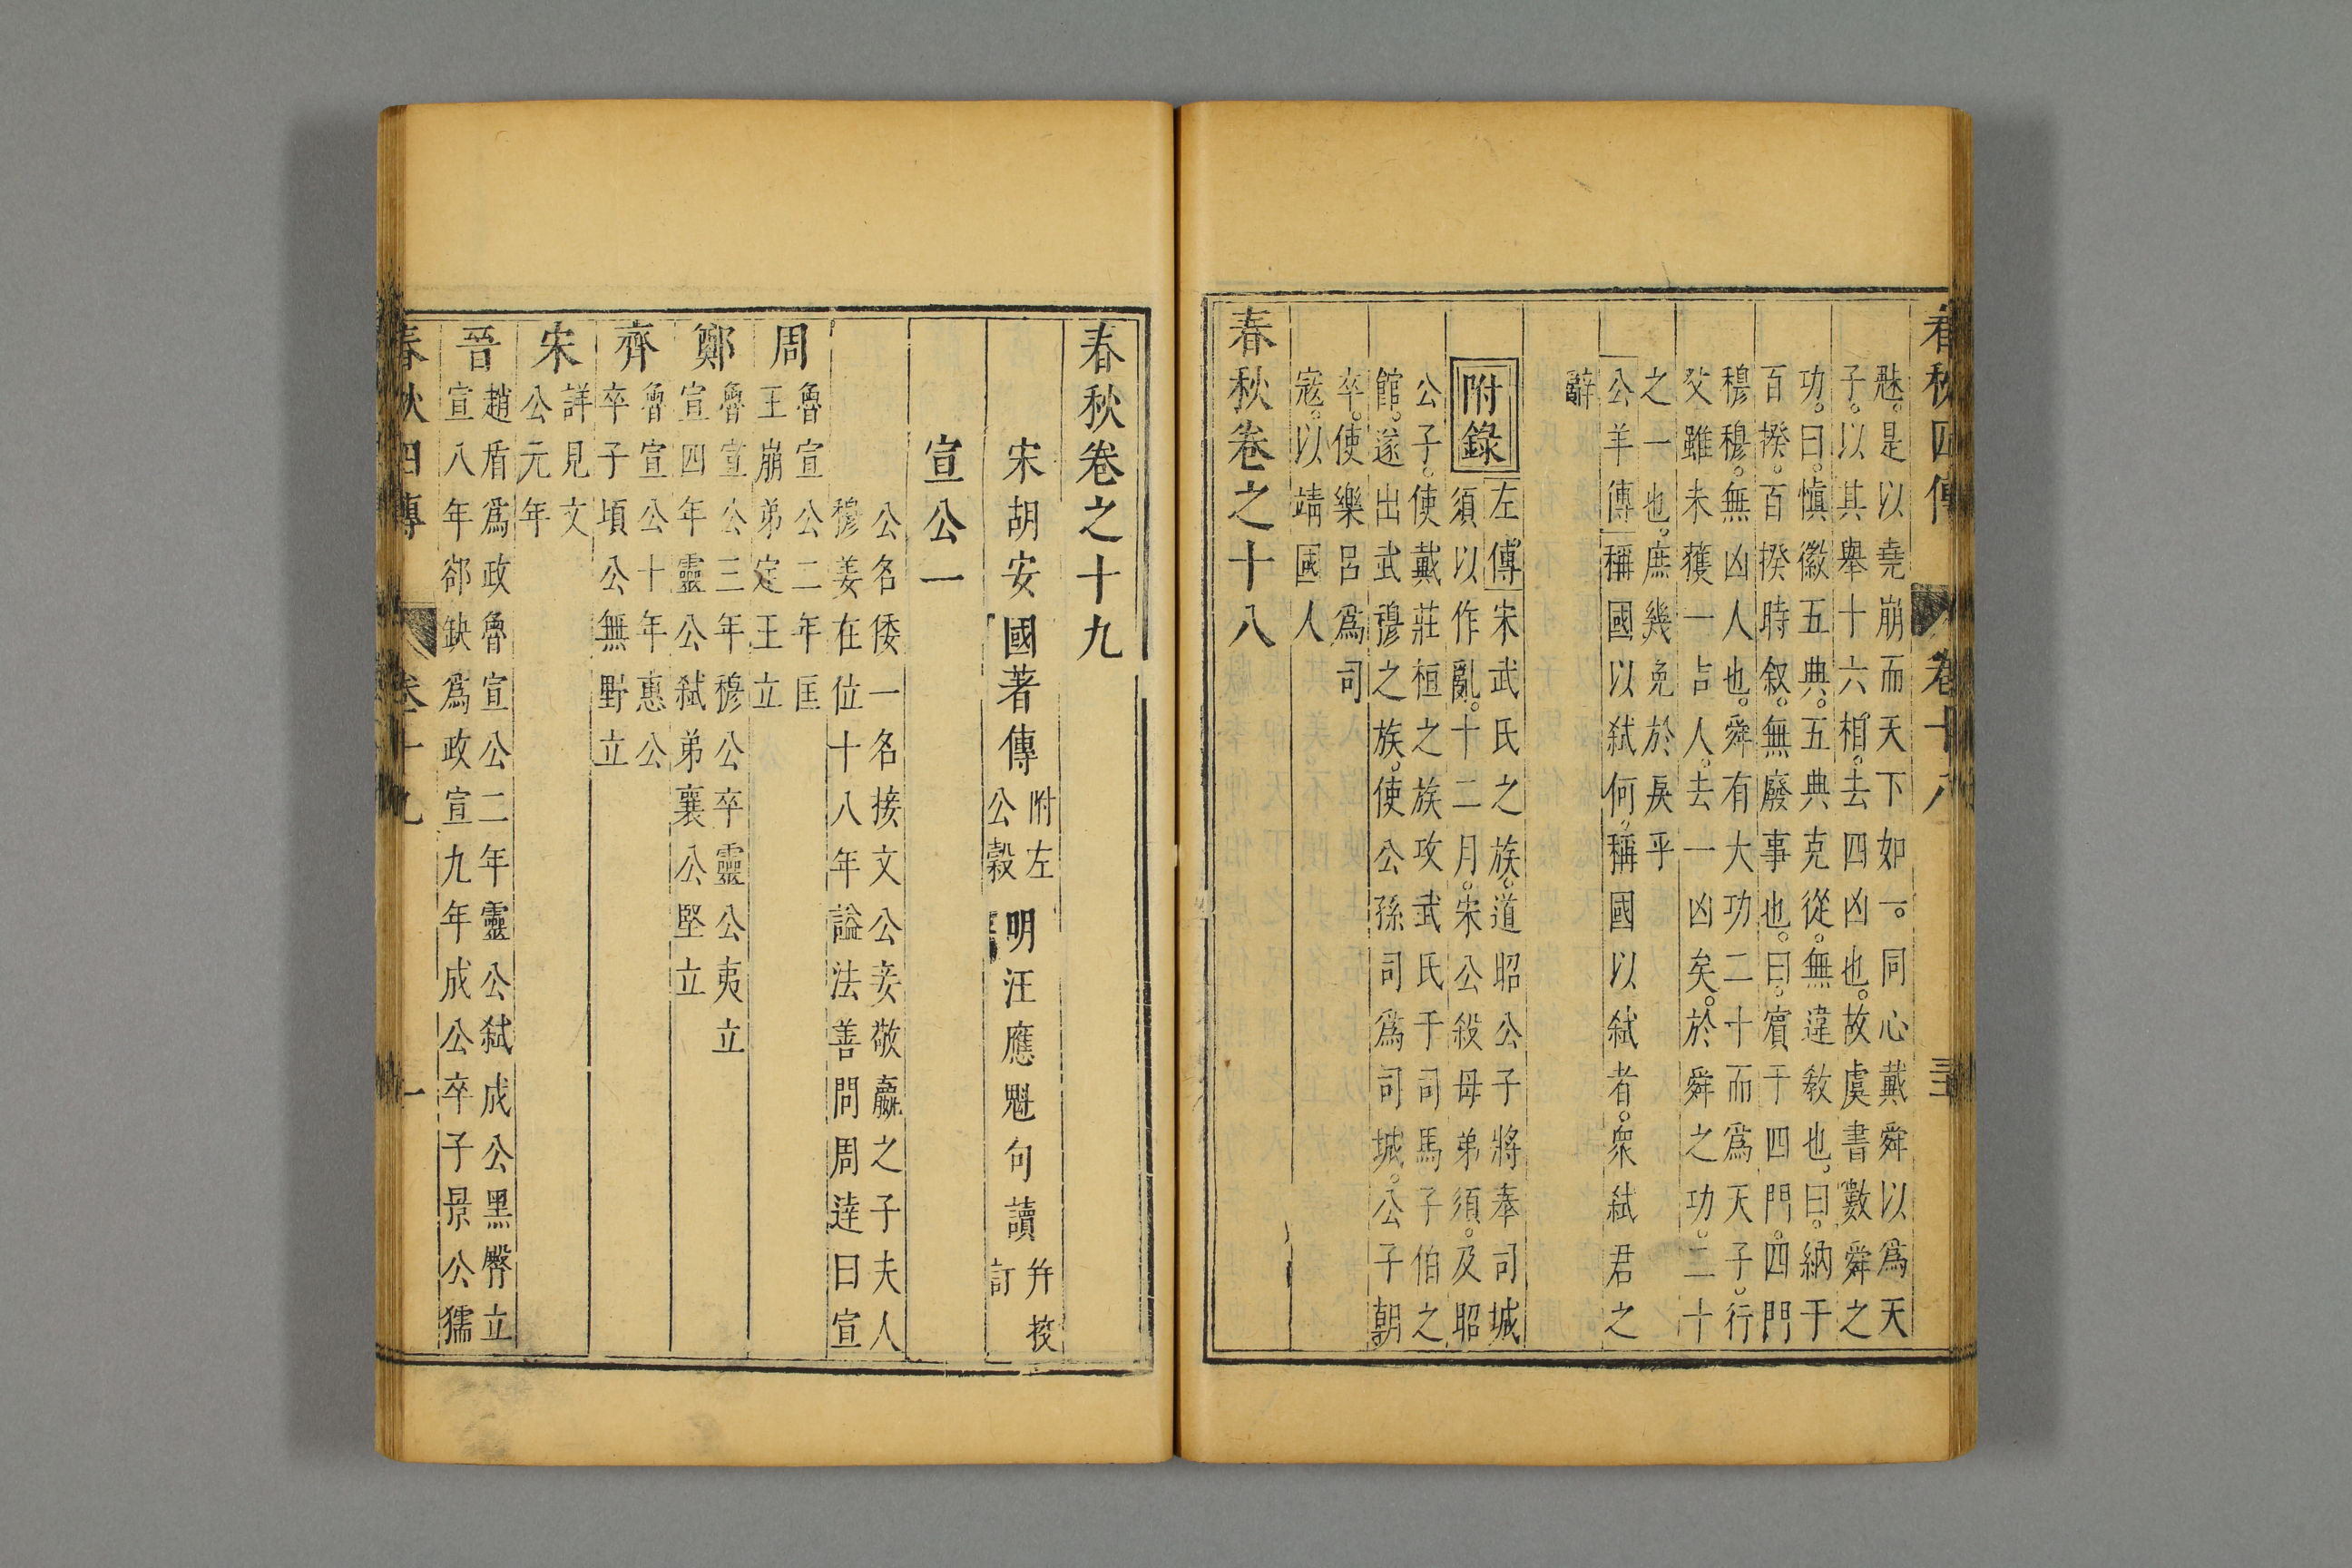 春秋四傳 卷十八
慝。是以堯崩而天下如一。同心戴舜以爲天
子。以其舉十六相。去四凶也。故虞書數舜之
功。曰。慎徽五典。五典克從。無違敎也。曰。納于
百揆。百揆時叙。無廢事也。曰。賔于四門。四門
穆穆。無凶人也。舜有大功二十而爲天子。行
父雖未獲一吉人。去一凶矣。於舜之功。二十
之一也。庶幾免於戾乎
公羊傳 稱國以弑何。稱國以弑者。衆弑君之
辭
附錄 左傳 宋武氏之族。道昭公子將奉司城
須以作亂。十二月。宋公殺母弟須。及昭
公子。使戴莊桓之族攻武氏于司馬子伯之
館。遂出武穆之族。使公孫司爲司城。公子朝
卒。使樂呂爲司
寇。以靖國人
春秋卷之十八
春秋卷之十九
宋胡安國著傳 附左公穀 明汪應魁句讀 幷挍訂
宣公一
公名倭一名接文公妾敬嬴之子夫人
穆姜在位十八年謚法善問周達曰宣
周 魯宣公二年匡
王崩弟定王立
鄭 魯宣公三年穆公卒靈公夷立
宣四年靈公弑弟襄公堅立
齊 魯宣公十年惠公
卒子頃公無野立
宋 詳見文
公元年
晉 趙盾爲政魯宣公二年靈公弑成公黑臀立
宣八年郤缺爲政宣九年成公卒子景公獳
春秋四傳 卷十九 一